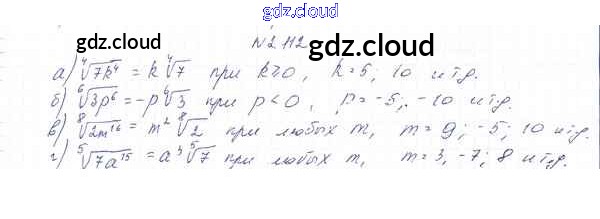 gdz.cloud
gdz.cloud № 2.112 gdz.cloud
а) ⁴√7k⁴ = k ⁴√7 при k≥0, k=5; 10 и т.д.
б) ⁶√3p⁶ = -p ⁶√3 при p<0, p=-5; -10 и т.д.
в) ⁸√2m¹⁶ = m² ⁸√2 при любых m, m=9; -5; 10 и т.д.
г) ⁵√7a¹⁵ = a³ ⁵√7 при любых m, m=3, -7; 8 и т.д.
gdz.cloud